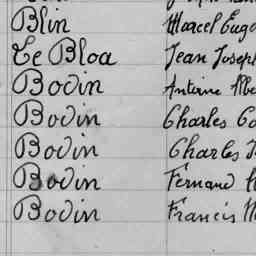 Blin Marcel Eug
Le Bloa Jean Joseph
Bodin Antoine Albe
Bodin Charles
Bodin Charles
Bodin Fernand
Bodin Francis